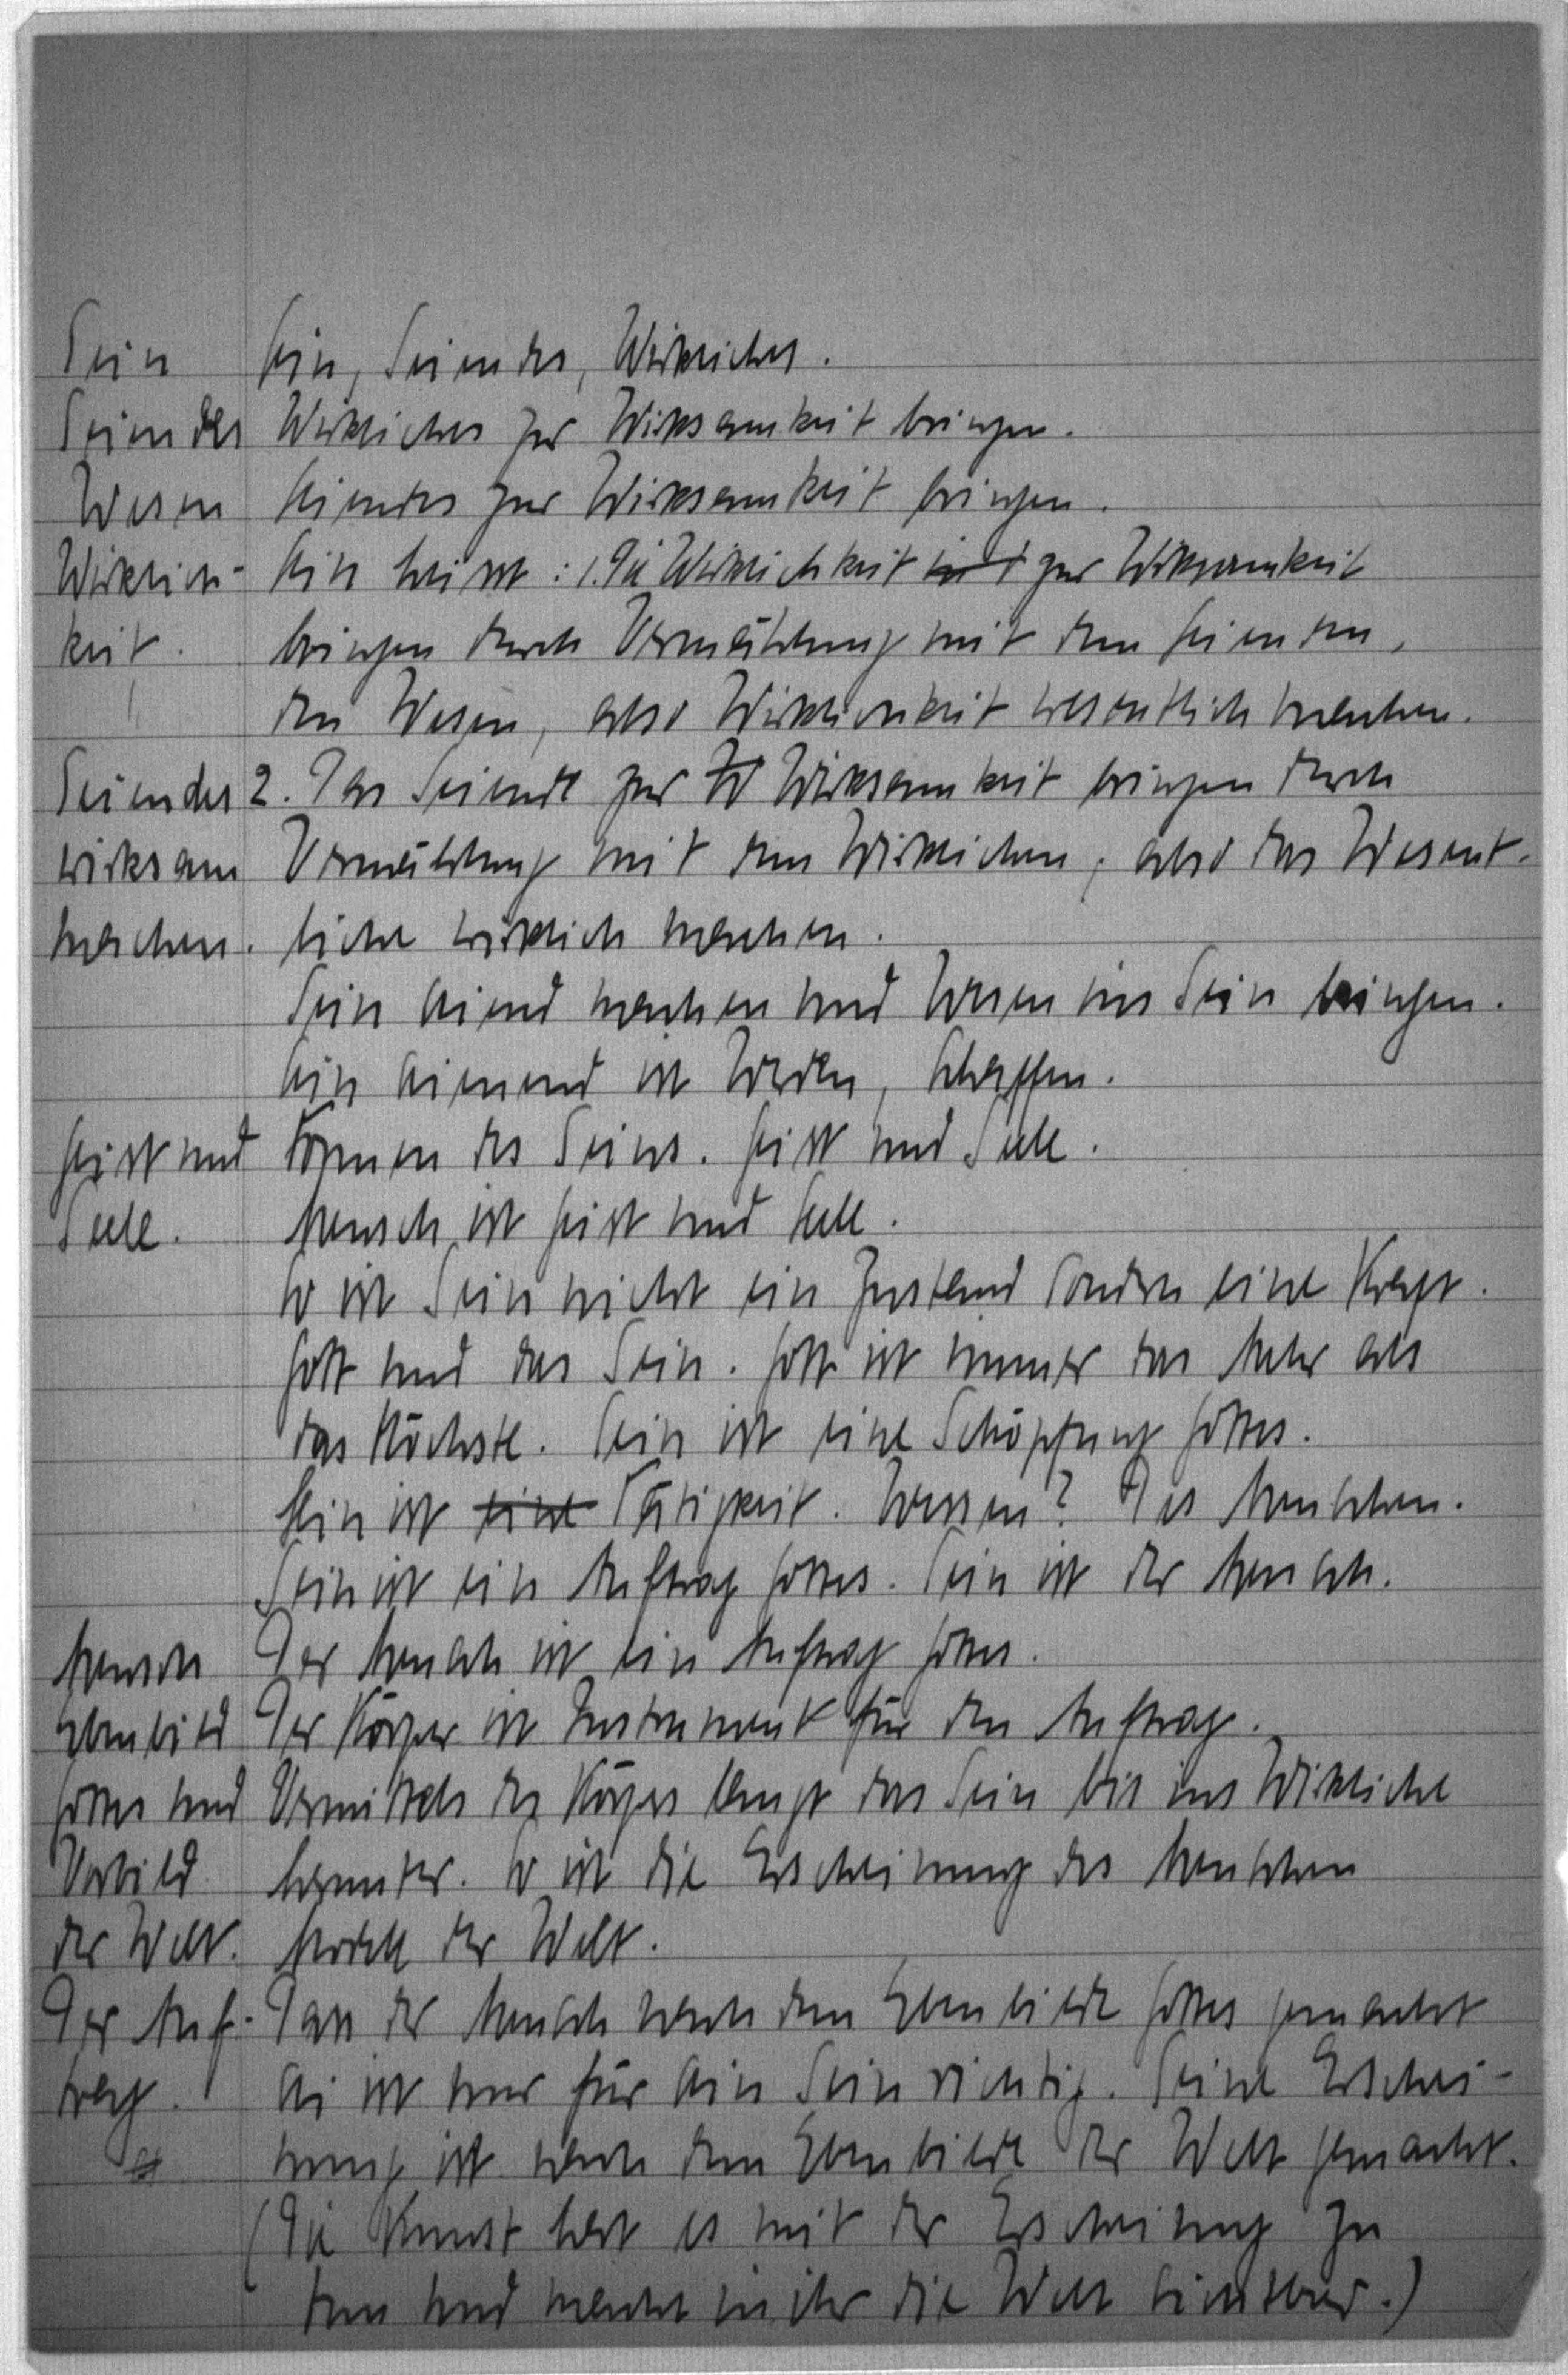 Sein Sein, Seiendes, Wirkliches.
Seiendes Wirkliches zur Wirksamkeit bringen.
Wesen Seiendes zur Wirksamkeit bringen.
Wirklich- Sein heisst: 1. Die Wirklichkeit zur Wirksamkeit
keit. bringen durch Vermählung mit dem Seienden,
den Wesen, also Wirklichkeit wesentlich machen.
Seiendes 2. Das Seiende zur W Wirksamkeit bringen durch
wirksam Vermählung mit dem Wirklichen, also das Wesent-
machen. liche wirklich machen.
Sein seiend machen und Wesen ins Sein bringen.
Sein seinend ist Werden, Schaffen.
Geist und Formen des Seins. Geist und Seele.
Seele. Mensch ist Geist und Seele.
So ist Sein nicht ein Zustand sondern eine Kraft.
Gott und das Sein. Gott ist immer das Mehr als
das Höchste. Sein ist eine Schöpfung Gottes.
Sein ist eine Tätigkeit. Wessen? Des Menschen.
Sein ist ein Auftrag Gottes. Sein ist der Mensch.
Mensch Der Mensch ist ein Auftrag Gottes.
Ebenbild Der Körper ist Instrument für den Auftrag.
Gottes und Vermittels des Körpers langt das Sein bis ins Wirkliche
Vorbild herunter. So ist die Erscheinung des Menschen
der Welt. Modell der Welt.
Der Auf- Dass der Mensch nach dem Ebenbilde Gottes gemacht
trag. sei ist nur für sein Sein richtig. Seine Erschei-
nung ist nach dem Ebenbilde der Welt gemacht.
(Die Kunst hat es mit der Erscheinung zu
tun und macht in ihr die Welt sichtbar.)